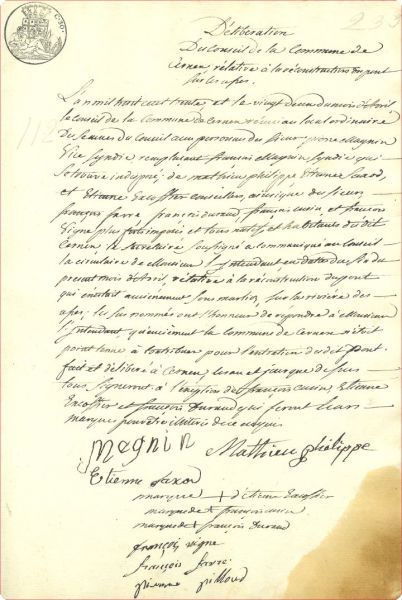 233
Déliberation
Du Conseil de la Commune de
Cernex rélative à la réconstruction du pont
sur les uses.
L'an mil huit cent trente, et le vingt deux du mois d'Avril
le conseil de la Commune de Cernex réuni au lieu ordinaire
de du Conseil aux personnes du Sieur Magnin
Vice Syndic remplaçant françois Magnin Syndic qui
se trouve indisposé, de mathieu philippe Etienne Saxod,
et Etienne conseillers, des sieurs
françois favre, françois durand, françois cusin et françois
Vigne plus forts imposés et tous natifs et habitants du dit
Cernex, le Secrétaire soussigné a communiqué au Conseil
la circulaire de Monsieur l'Intendant en date du du
présent mois d'Avril, rélative à la réconstruction du pont
qui existait anciennement sur la rivière des
uses; les sus nommés ont l'honneur de répondre à Monsieur
l'Intendant, qu'anciennement la commune de Cernex n'était
pas à contribuer pour l'entretien du dit Pont
fait et délibéré à Cernex les an et jour que dessus
tous signeront à l'exception de françois cusin, Etienne
et françois Durand qui feront leurs
marques pour être de ce requis
Magnin Mathieu philippe
Etienne Saxod
marque + d'Etienne
marque de + françois cusin
marque de + françois durand
françois vigne
françois favre
pierre pilloud